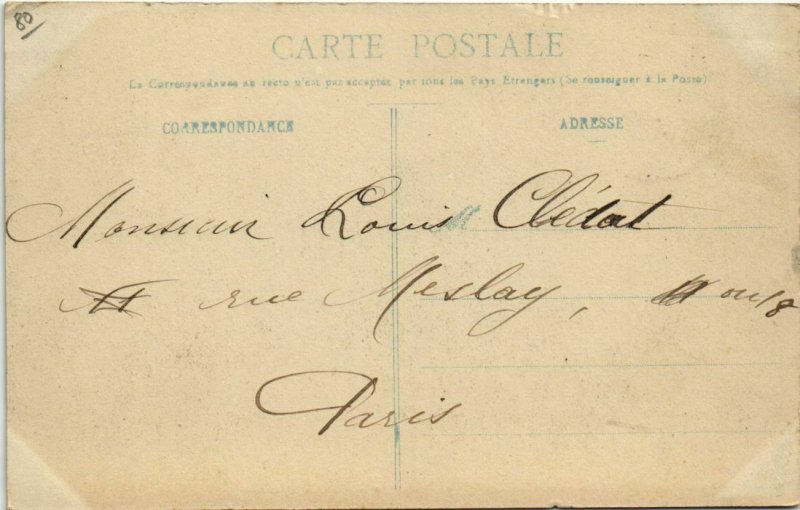 80/
CARTE POSTALE
La Correspondance au recto n'est pas acceptée par tous les Pays Etrangers (Se renseigner à la Poste)
CORRESPONDANCE
ADRESSE
Monsieur Louis Clédat
rue Meslay, ou 8
Paris